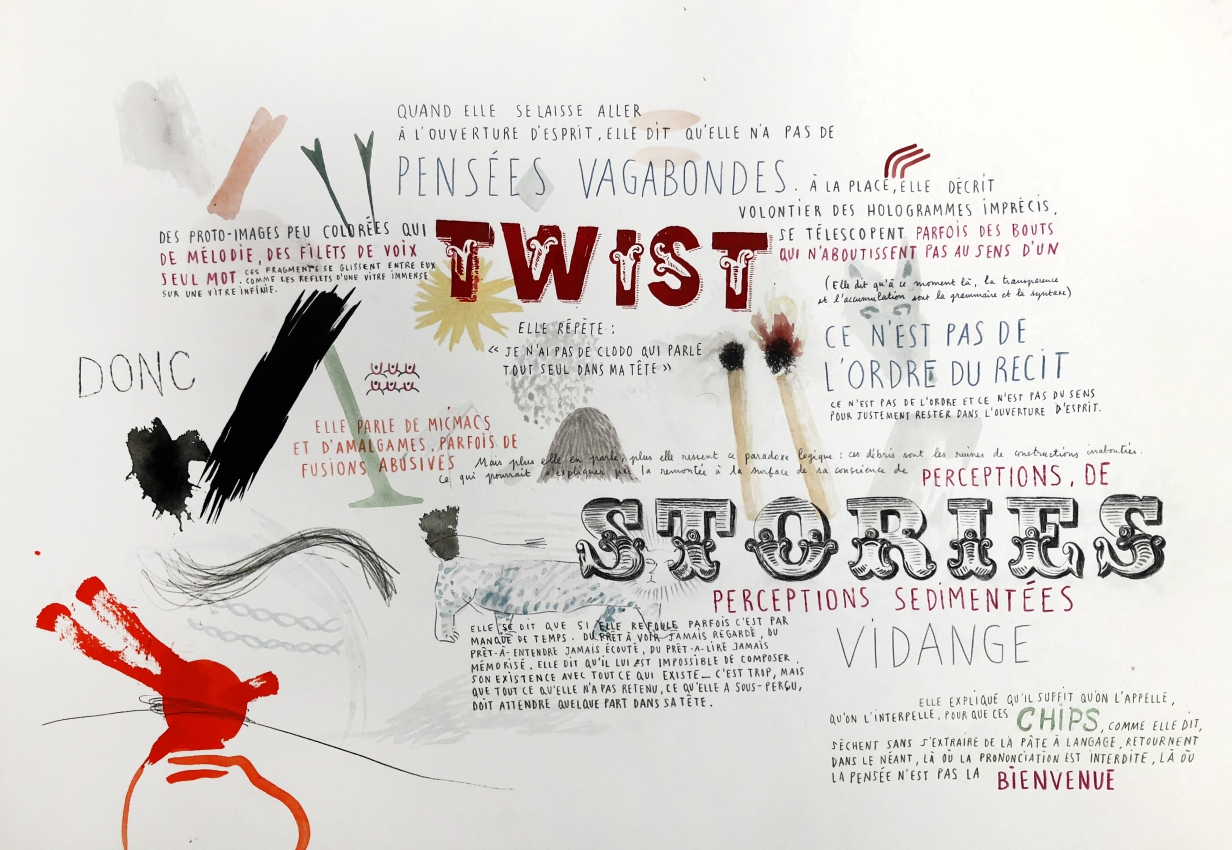 QUAND ELLE SE LAISSE ALLER
À L'OUVERTURE D'ESPRIT, ELLE DIT QU'ELLE N'A PAS DE
PENSÉES VAGABONDES. À LA PLACE, ELLE DÉCRIT
VOLONTIER DES HOLOGRAMMES IMPRÉCIS,
DES PROTO-IMAGES PEU COLORÉES QUI
TWIST
SE TÉLESCOPENT PARFOIS DES BOUTS
DE MÉLODIE, DES FILETS DE VOIX
QUI N'ABOUTISSENT PAS AU SENS D'UN
SEUL MOT. CES FRAGMENTS SE GLISSENT ENTRE EUX
COMME LES REFLETS D'UNE VITRE IMMENSE
SUR UNE VITRE INFINIE.
(Elle dit qu'à ce moment là, la transparence
et l'accumulation sont la grammaire et la syntaxe)
ELLE RÉPÈTE :
« JE N'AI PAS DE CLODO QUI PARLE
TOUT SEUL DANS MA TÊTE »
CE N'EST PAS DE
L'ORDRE DU RECIT
CE N'EST PAS DE L'ORDRE ET CE N'EST PAS DU SENS
POUR JUSTEMENT RESTER DANS L'OUVERTURE D'ESPRIT.
DONC
ELLE PARLE DE MICMACS
ET D'AMALGAMES, PARFOIS DE
FUSIONS ABUSIVES
Mais plus elle en parle, plus elle ressent ce paradoxe logique : ces débris sont les ruines de constructions inabouties.
ce qui pourrait s'expliquer par la remontée à la surface de sa conscience de
PERCEPTIONS, DE
STORIES
PERCEPTIONS SEDIMENTÉES
VIDANGE
ELLE SE DIT QUE SI ELLE REFOULE PARFOIS C'EST PAR
MANQUE DE TEMPS. DU PRÊT À VOIR JAMAIS REGARDÉ, DU
PRÊT-À-ENTENDRE JAMAIS ÉCOUTÉ, DU PRÊT-A-LIRE JAMAIS
MÉMORISÉ. ELLE DIT QU'IL LUI EST IMPOSSIBLE DE COMPOSER
SON EXISTENCE AVEC TOUT CE QUI EXISTE_ C'EST TROP, MAIS
QUE TOUT CE QU'ELLE N'A PAS RETENU, CE QU'ELLE A SOUS-PERÇU,
DOIT ATTENDRE QUELQUE PART DANS SA TÊTE.
ELLE EXPLIQUE QU'IL SUFFIT QU'ON L'APPELLE,
QU'ON L'INTERPELLE, POUR QUE CES CHIPS, COMME ELLE DIT,
SÈCHENT SANS S'EXTRAIRE DE LA PÂTE À LANGAGE, RETOURNENT
DANS LE NÉANT, LÀ OÙ LA PRONONCIATION EST INTERDITE, LÀ OÙ
LA PENSÉE N'EST PAS LA BIENVENUE